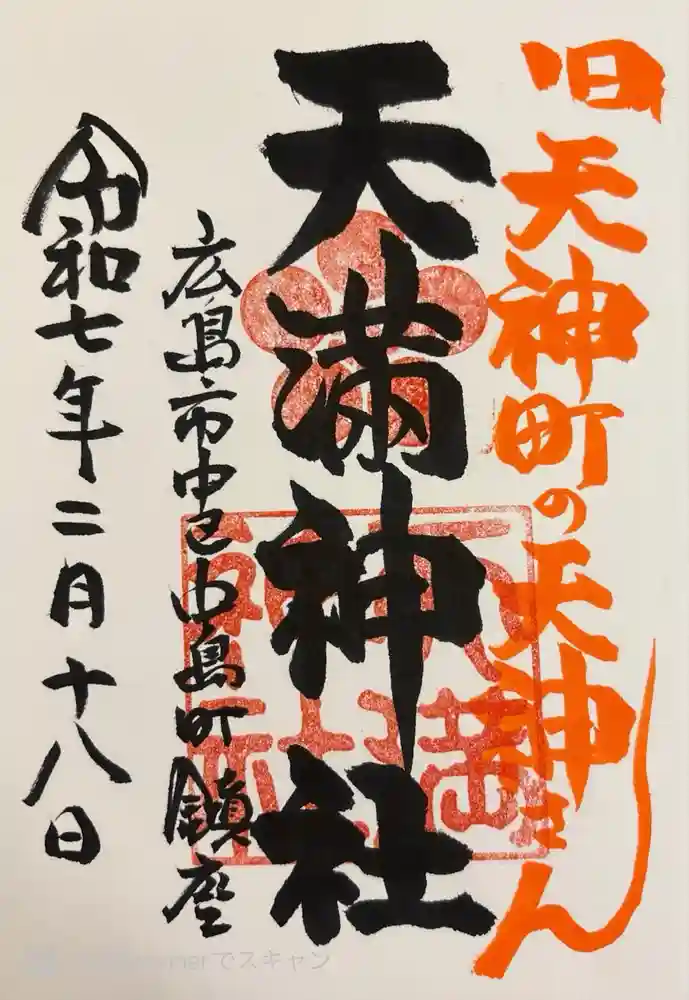 旧天神町の天神さん
天満神社
広島市中区中島町鎮座
令和七年二月十八日
でスキャン